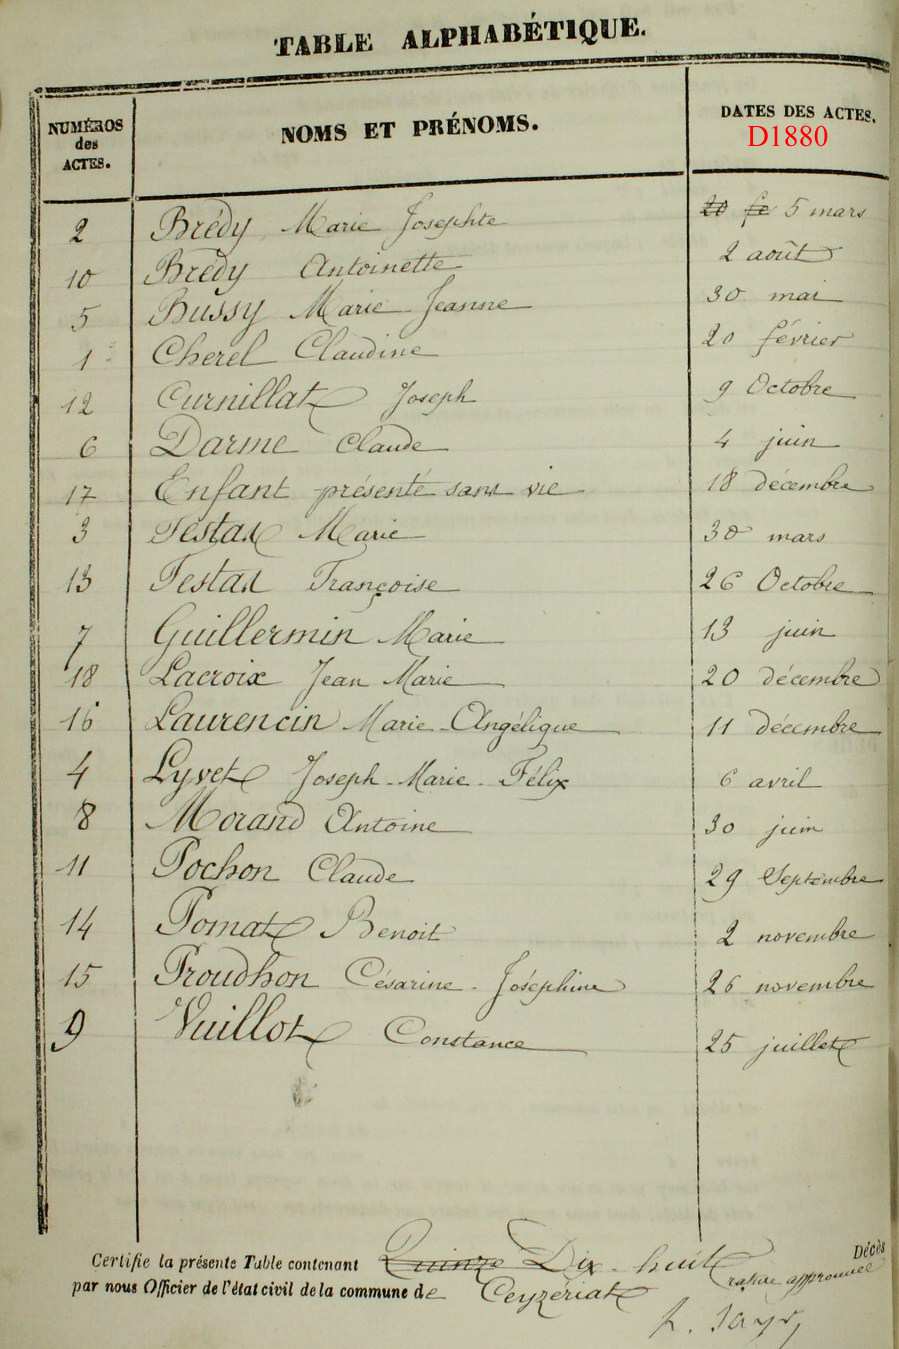 TABLE ALPHABÉTIQUE.
NUMÉROS des ACTES. NOMS ET PRÉNOMS. DATES DES ACTES.
D1880
2 Brédy Marie Josephte 20 fe 5 mars
10 Brédy Antoinette 2 août
5 Bussy Marie Jeanne 30 mai
1 Cherel Claudine 20 février
12 Curnillat Joseph 9 Octobre
6 Darme Claude 4 juin
17 Enfant présenté sans vie 18 décembre
3 Festas Marie 30 mars
13 Festas Françoise 26 Octobre
7 Guillermin Marie 13 juin
18 Lacroix Jean Marie 20 décembre
16 Laurencin Marie-Angélique 11 décembre
4 Lyvet Joseph-Marie-Félix 6 avril
8 Morand Antoine 30 juin
11 Pochon Claude 29 Septembre
14 Pomat Benoit 2 novembre
15 Proudhon Césarine-Joséphine 26 novembre
9 Vuillot Constance 25 juillet
Certifie la présente Table contenant Quinze Dix-huit Décès
rature approuvée
par nous Officier de l'état civil de la commune de Ceyzériat